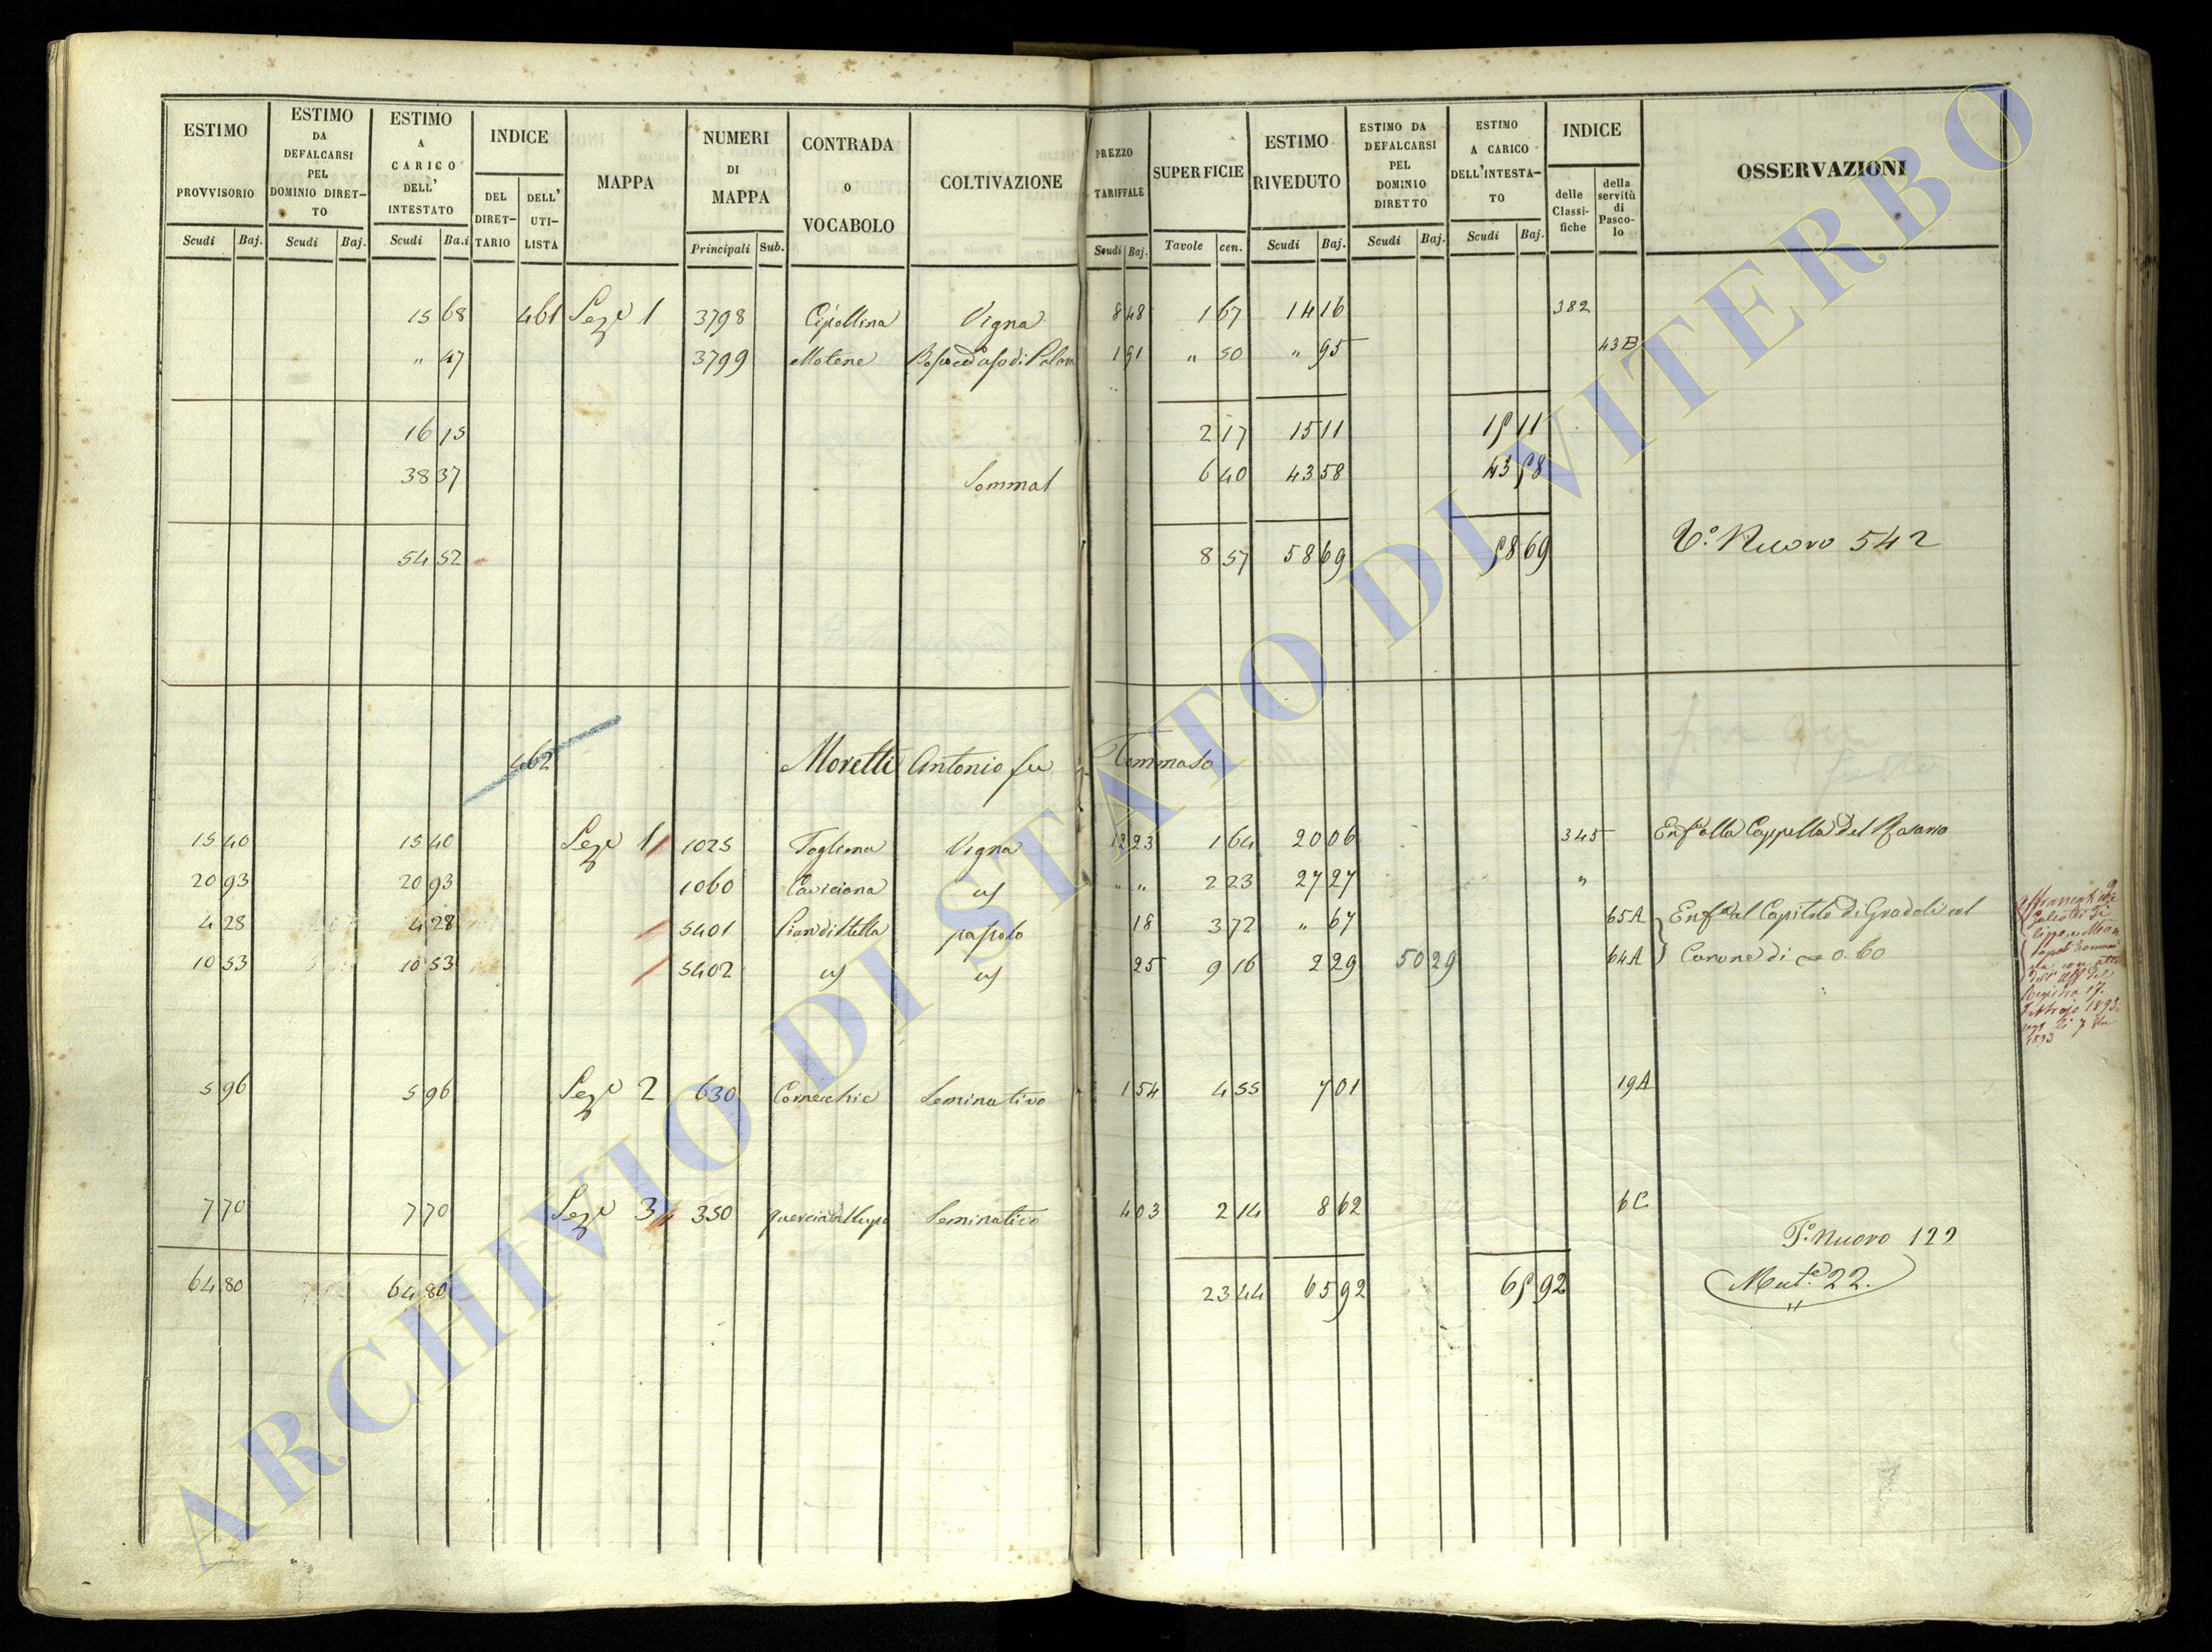 ESTIMO PROVVISORIO Scudi Baj. | ESTIMO DA DEFALCARSI PEL DOMINIO DIRETTO Scudi Baj. | ESTIMO A CARICO DELL' INTESTATO Scudi Ba.i | INDICE DEL DIRET-TARIO DELL' UTI-LISTA | MAPPA | NUMERI DI MAPPA Principali Sub. | CONTRADA O VOCABOLO | COLTIVAZIONE | PREZZO TARIFFALE Scudi Baj. | SUPERFICIE Tavole cen. | ESTIMO RIVEDUTO Scudi Baj. | ESTIMO DA DEFALCARSI PEL DOMINIO DIRETTO Scudi Baj. | ESTIMO A CARICO DELL'INTESTA-TO Scudi Baj. | INDICE delle Classi-fiche della servitù di Pasco-lo | OSSERVAZIONI
15 68 461 Sez.e 1 3798 Cipollina Vigna 8 48 1 67 14 16 382
" 47 3799 Matene 1 91 " 50 " 95 43 B
16 15 2 17 15 11 15 11
38 37 Somma 6 40 43 58 43 58
54 52 8 57 58 69 58 69 V.o Nuovo 542
462 Moretti Antonio fu Tommaso
15 40 15 40 Sez.e 1 1025 Vigna 12 23 1 64 20 06 345 Enf.a alla Cappella del Rosario
20 93 20 93 1060 " " 2 23 27 27 "
4 28 4 28 5401 18 3 72 " 67 65A Enf.a al Capitolo di Gradoli col
10 53 10 53 5402 25 9 16 2 29 50 29 64A Canone di 0.60
5 96 5 96 Sez.e 2 630 Cornecchie Seminativo 1 54 4 55 7 01 19A
7 70 7 70 Sez.e 3 350 Seminativo 4 03 2 14 8 62 6C
T.o Nuovo 122
64 80 64 80 23 44 65 92 65 92 Mut.e 22.
Registro 17
1893
ARCHIVIO DI STATO DI VITERBO